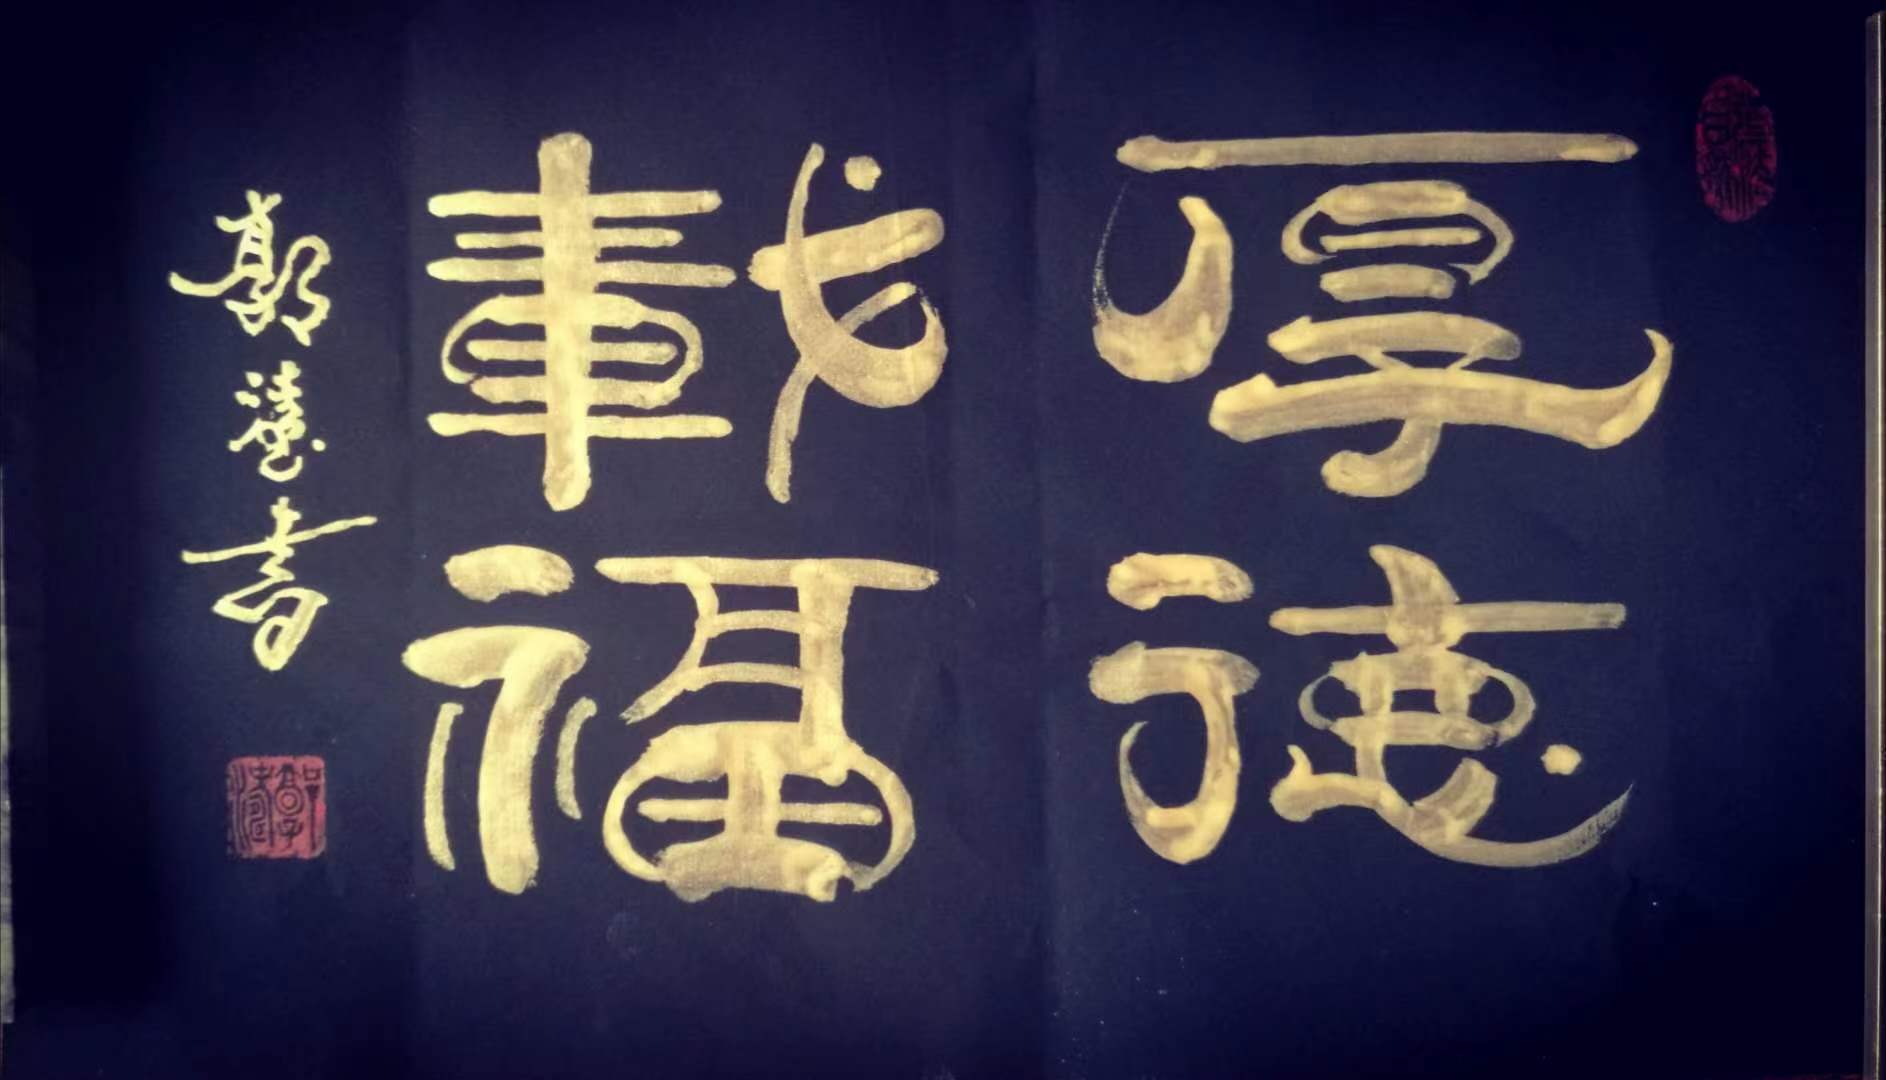 厚德
載福
郭書